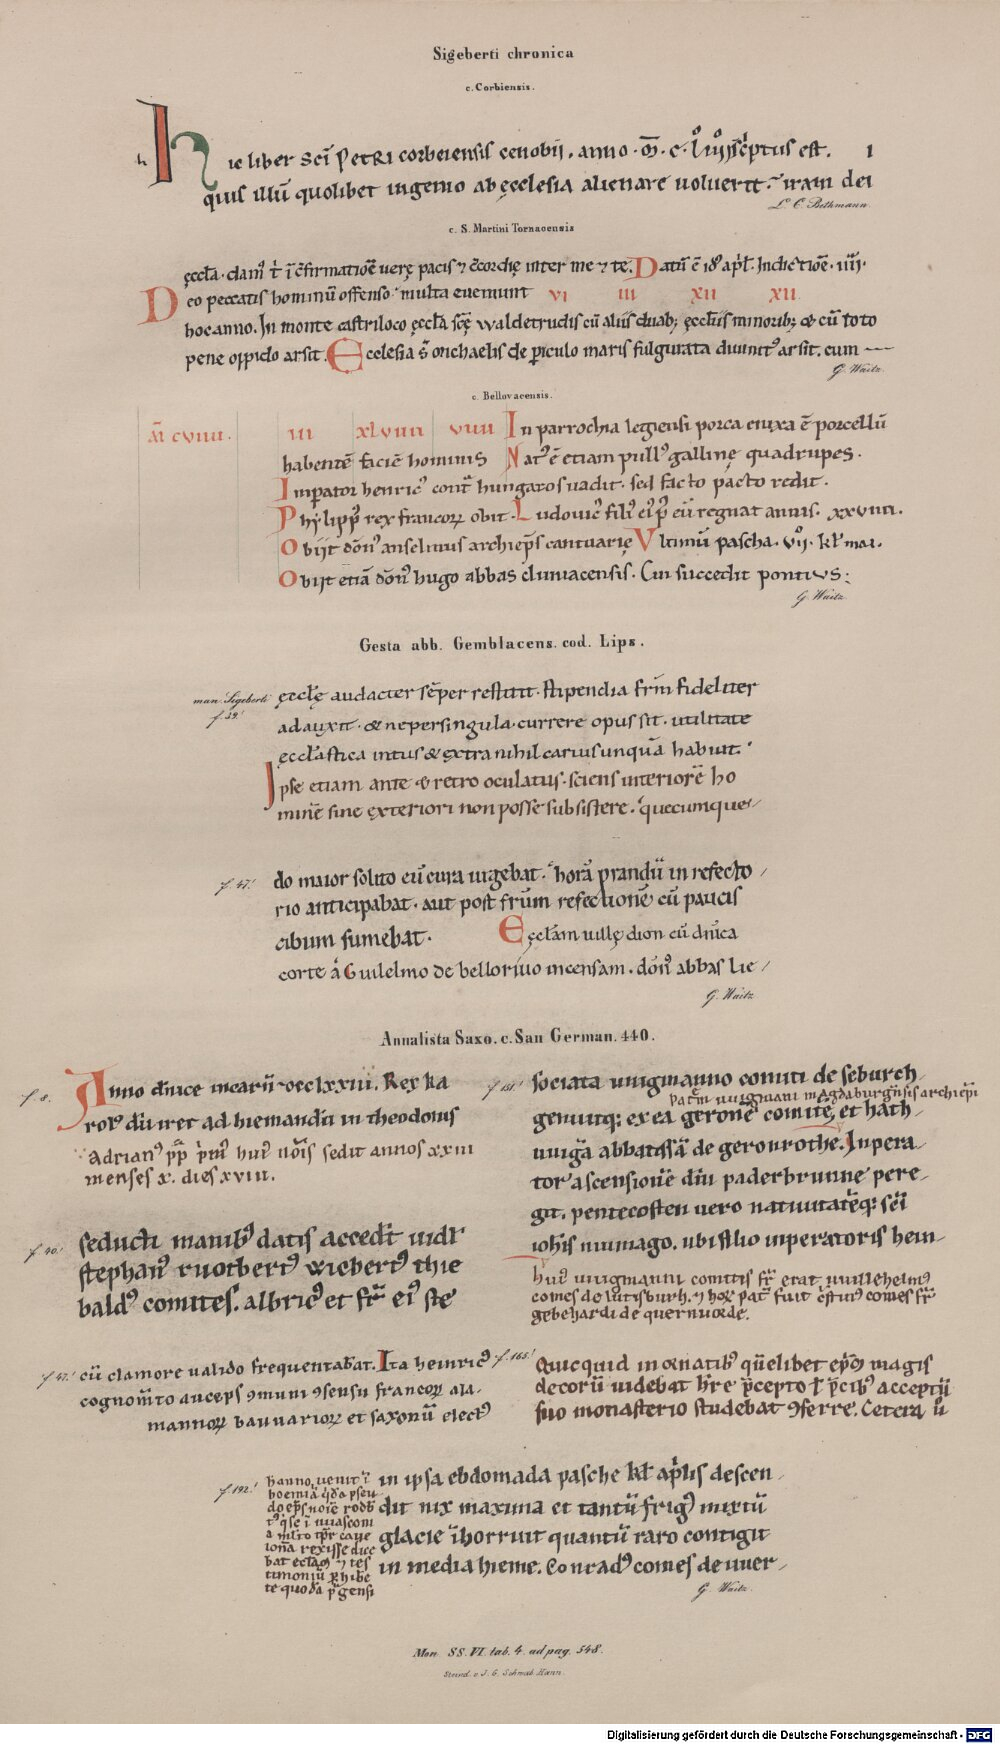 Sigeberti chronica
c. Corbiensis.
h
Hic liber sci PetRI corbeiensis cenobii. anno. M̅. c. L̊. iiij̊. scⁱptus est. I
quis illū quolibet ingenio ab ęcclesia alienare voluerit. iram dei
L. C. Bethmann.
c. S. Martini Tornacensis
ęccła. dam' t̄ ī c̄firmatiōe verę pacis ⁊ c̄cordię inter me ⁊ te. Datū ē id' apł. Indictiōe. iiii.
Deo peccatis hominū offenso multa eveniunt VI III XII XII
hoc anno. In monte castriloco ęccła scę waldetrudis cū aliis duab; ęcclliis minorib; & cū toto
pene oppido arsit. Ecclesia s̄ michaelis de periculo maris fulgurata divinit' arsit. cum
G. Waitz.
c. Bellovacensis.
M̄ CVIIII. III XLVIIII VIIII In parrochia legiensi porca enixa ē porcellū
habentē faciē hominis Nat' ē etiam pull' gallinę quadrupes.
Inperator henric' contra hungaros vadit. sed facto pacto redit.
Phylipp' rex francoꝝ obit. Ludovic' fili' ei' p' eū regnat annis. xxviii.
Obijt don' anselmus archieps cantuarię Vltimū pascha. vij. kł mai.
Obijt etiā don' hugo abbas cluniacensis. Cui succedit pontivs:
G. Waitz
Gesta abb. Gemblacens. cod. Lips.
man. Sigeberti
f. 39.'
ęccłę audacter sēper restitit. stipendia frm fideliter
adauxit. & nepersingula. currere opus sit. utilitate
ęccłastica intus & extra nihil carius unquā habuit.
Ipse etiam ante & retro oculatus. sciens interiorē ho
minē sine exteriori non posse subsistere. quecumque
f. 47.'
do maior solito cū cura urgebat. horā prandii in refecto
rio anticipabat. aut post frūm refectionē cū paucis
cibum sumebat. Eęcłam villę dion cū dnica
corte a Guilelmo de bellorivo incensam. don' abbas Lie
G. Waitz
Annalista Saxo. c. San German. 440.
f. 8.
Anno dnice incarn. dcclxxiii. Rex ka
rol' dū iret ad hiemandū in theodonis
Adrian' pp p'm' hui' nois sedit annos xxiii
menses x. dies xvii.
f. 40.'
seducti manib' datis accedt uidr
stephan' ruotbert' wiebert' thie
bald' comites. albric' et fr ei' ste
f. 47.'
cū clamore valido frequentabat. Ita heinric'
cognomto auceps ꝯmuni ꝯsensu francoꝝ ala.
mannoꝝ bauvarioꝝ et saxonū elect'
f. 151.'
sociata wigmanno comiti de seburch
patrem wigmani magdaburgensis archiepi
genuitq; ex ea geronē comitē, et hath
wigā abbatissā de geronrothe. Inpera
tor ascensionē dni paderbrunne pere
git. pentecosten vero nativitateq; sci
iohis niumago. ubi filio inperatoris hein
hui' wigmanni comitis fr erat willehelm'
comes de lutisburh. ⁊ hoꝝ pat' fuit cstin' comes fr
gebehardi de quernvorde.
f. 165.'
Quicquid in ornatib' quelibet epōꝝ magis
decorū videbat hre pcepto ł pcib' acceptū
suo monasterio studebat ꝯferre. Cetera ū
f. 192.'
hanno. venit ī
boemiā qda pseu
do eps noie rodb
t' q se ī wasconi
a multo tpr cave
ionā rexisse dice
bat ecclaꝝ ⁊ tes
timoniū phibe
te quoda pgensi
in ipsa ebdomada pasche kł aplis descen
dit nix maxima et tantū frig' mixtū
glacie īhorruit quantū raro contigit
in media hieme. Conrad' comes de wer
G. Waitz.
Mon. SS. VI. tab. 4. ad pag. 548.
Steind. v. J. G. Schwab. Hann.
Digitalisierung gefördert durch die Deutsche Forschungsgemeinschaft - DFG